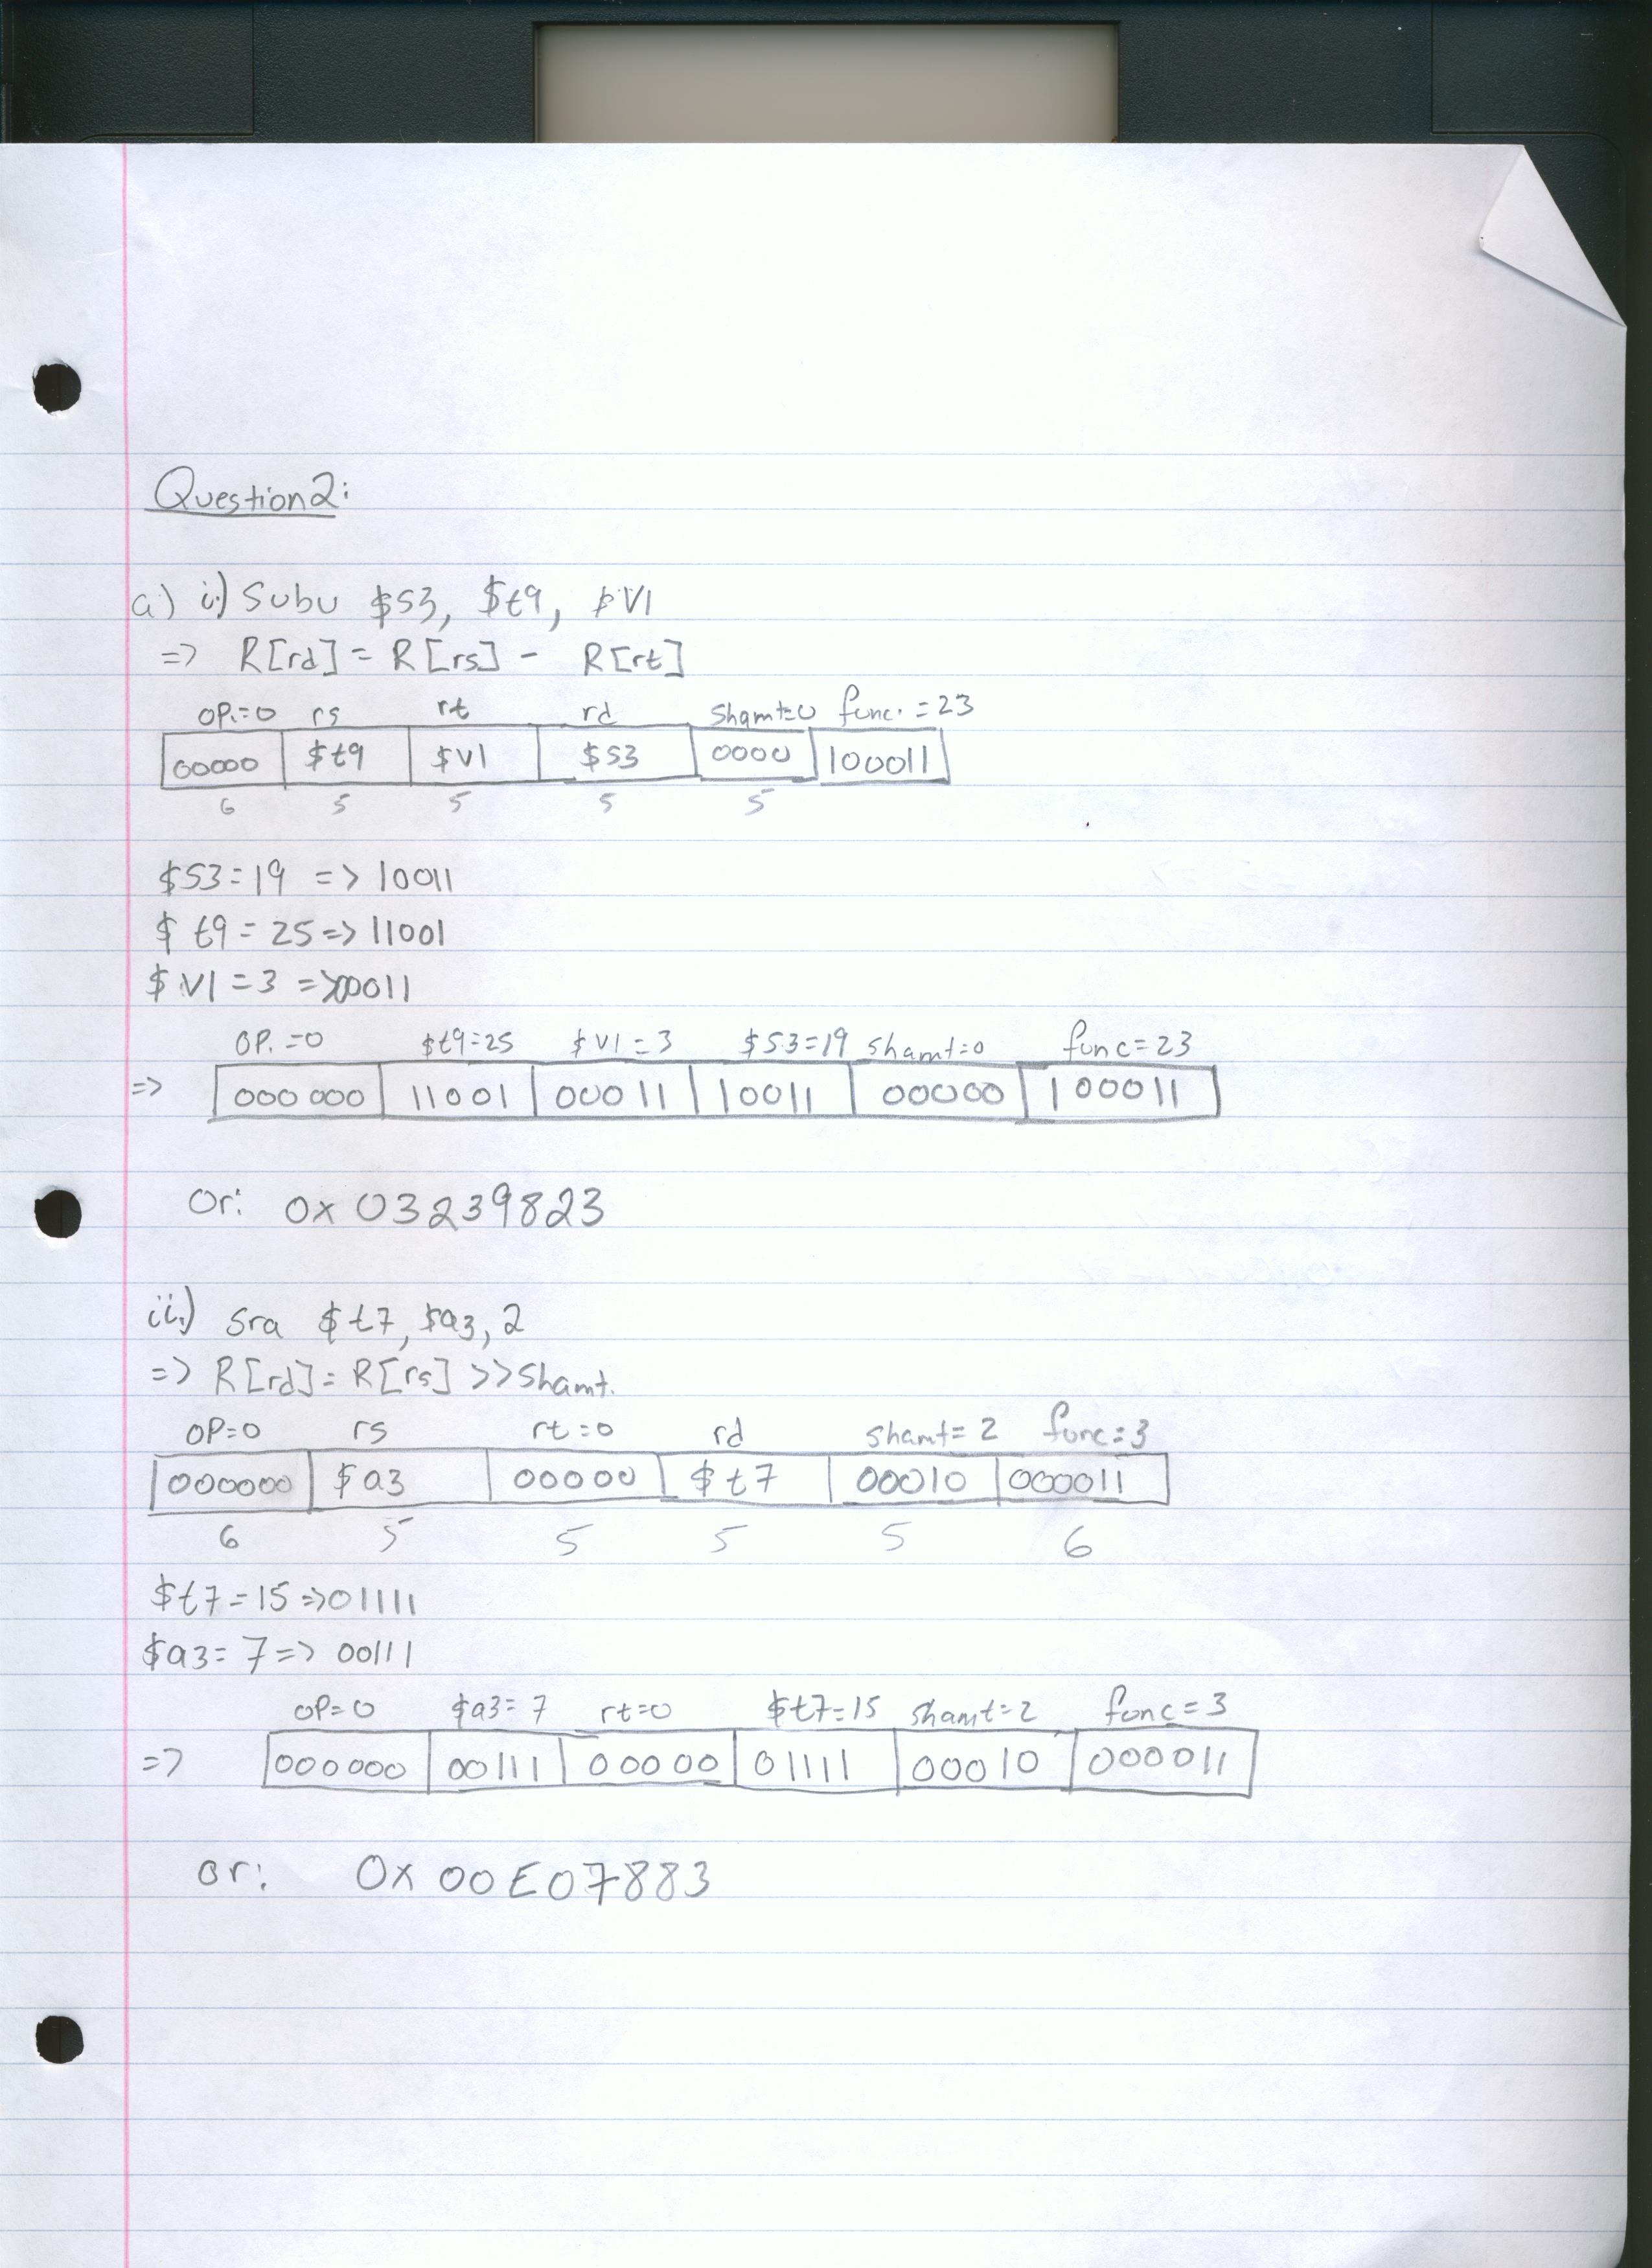 Question 2:
a) i.) Subu $S3, $t9, $V1
=> R[rd] = R[rs] - R[rt]
OP.=0 rs rt rd Shamt=0 func. = 23
00000 $t9 $V1 $S3 0000 100011
6 5 5 5 5
$S3=19 => 10011
$t9 = 25 => 11001
$V1 = 3 => 00011
OP. =0 $t9=25 $V1=3 $S3=19 shamt=0 func=23
=> 000 000 11001 00011 10011 00000 100011
Or: 0x03239823
ii.) Sra $t7, $a3, 2
=> R[rd] = R[rs] >> Shamt.
OP=0 rs rt=0 rd shamt= 2 func=3
000000 $a3 00000 $t7 00010 000011
6 5 5 5 5 6
$t7=15 => 01111
$a3= 7 => 00111
OP= 0 $a3= 7 rt=0 $t7=15 shamt=2 func=3
=> 000000 00111 00000 01111 00010 000011
or: 0x00E07883